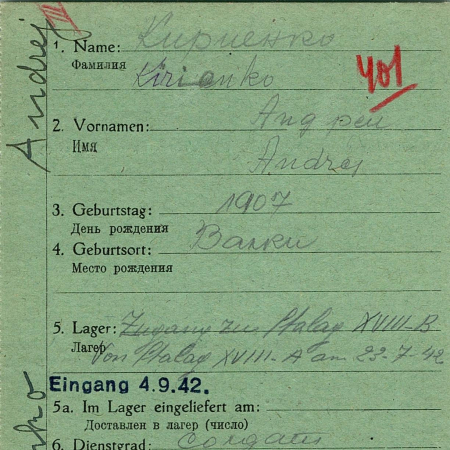 III
Andrej
1. Name: Кириенко
Фамилия
Kirienko
401
2. Vornamen: Андреи
Имя
Andrej
3. Geburtstag: 1907
День рождения
4. Geburtsort: Валки
Место рождения
5. Lager: Zugang zu Stalag XVIII-B
Лагер
Von Stalag XVIII-A am 23-7-42
Eingang 4.9.42.
5a. Im Lager eingeliefert am:
Доставлен в лагер (число)
6. Dienstgrad: солдат
nko